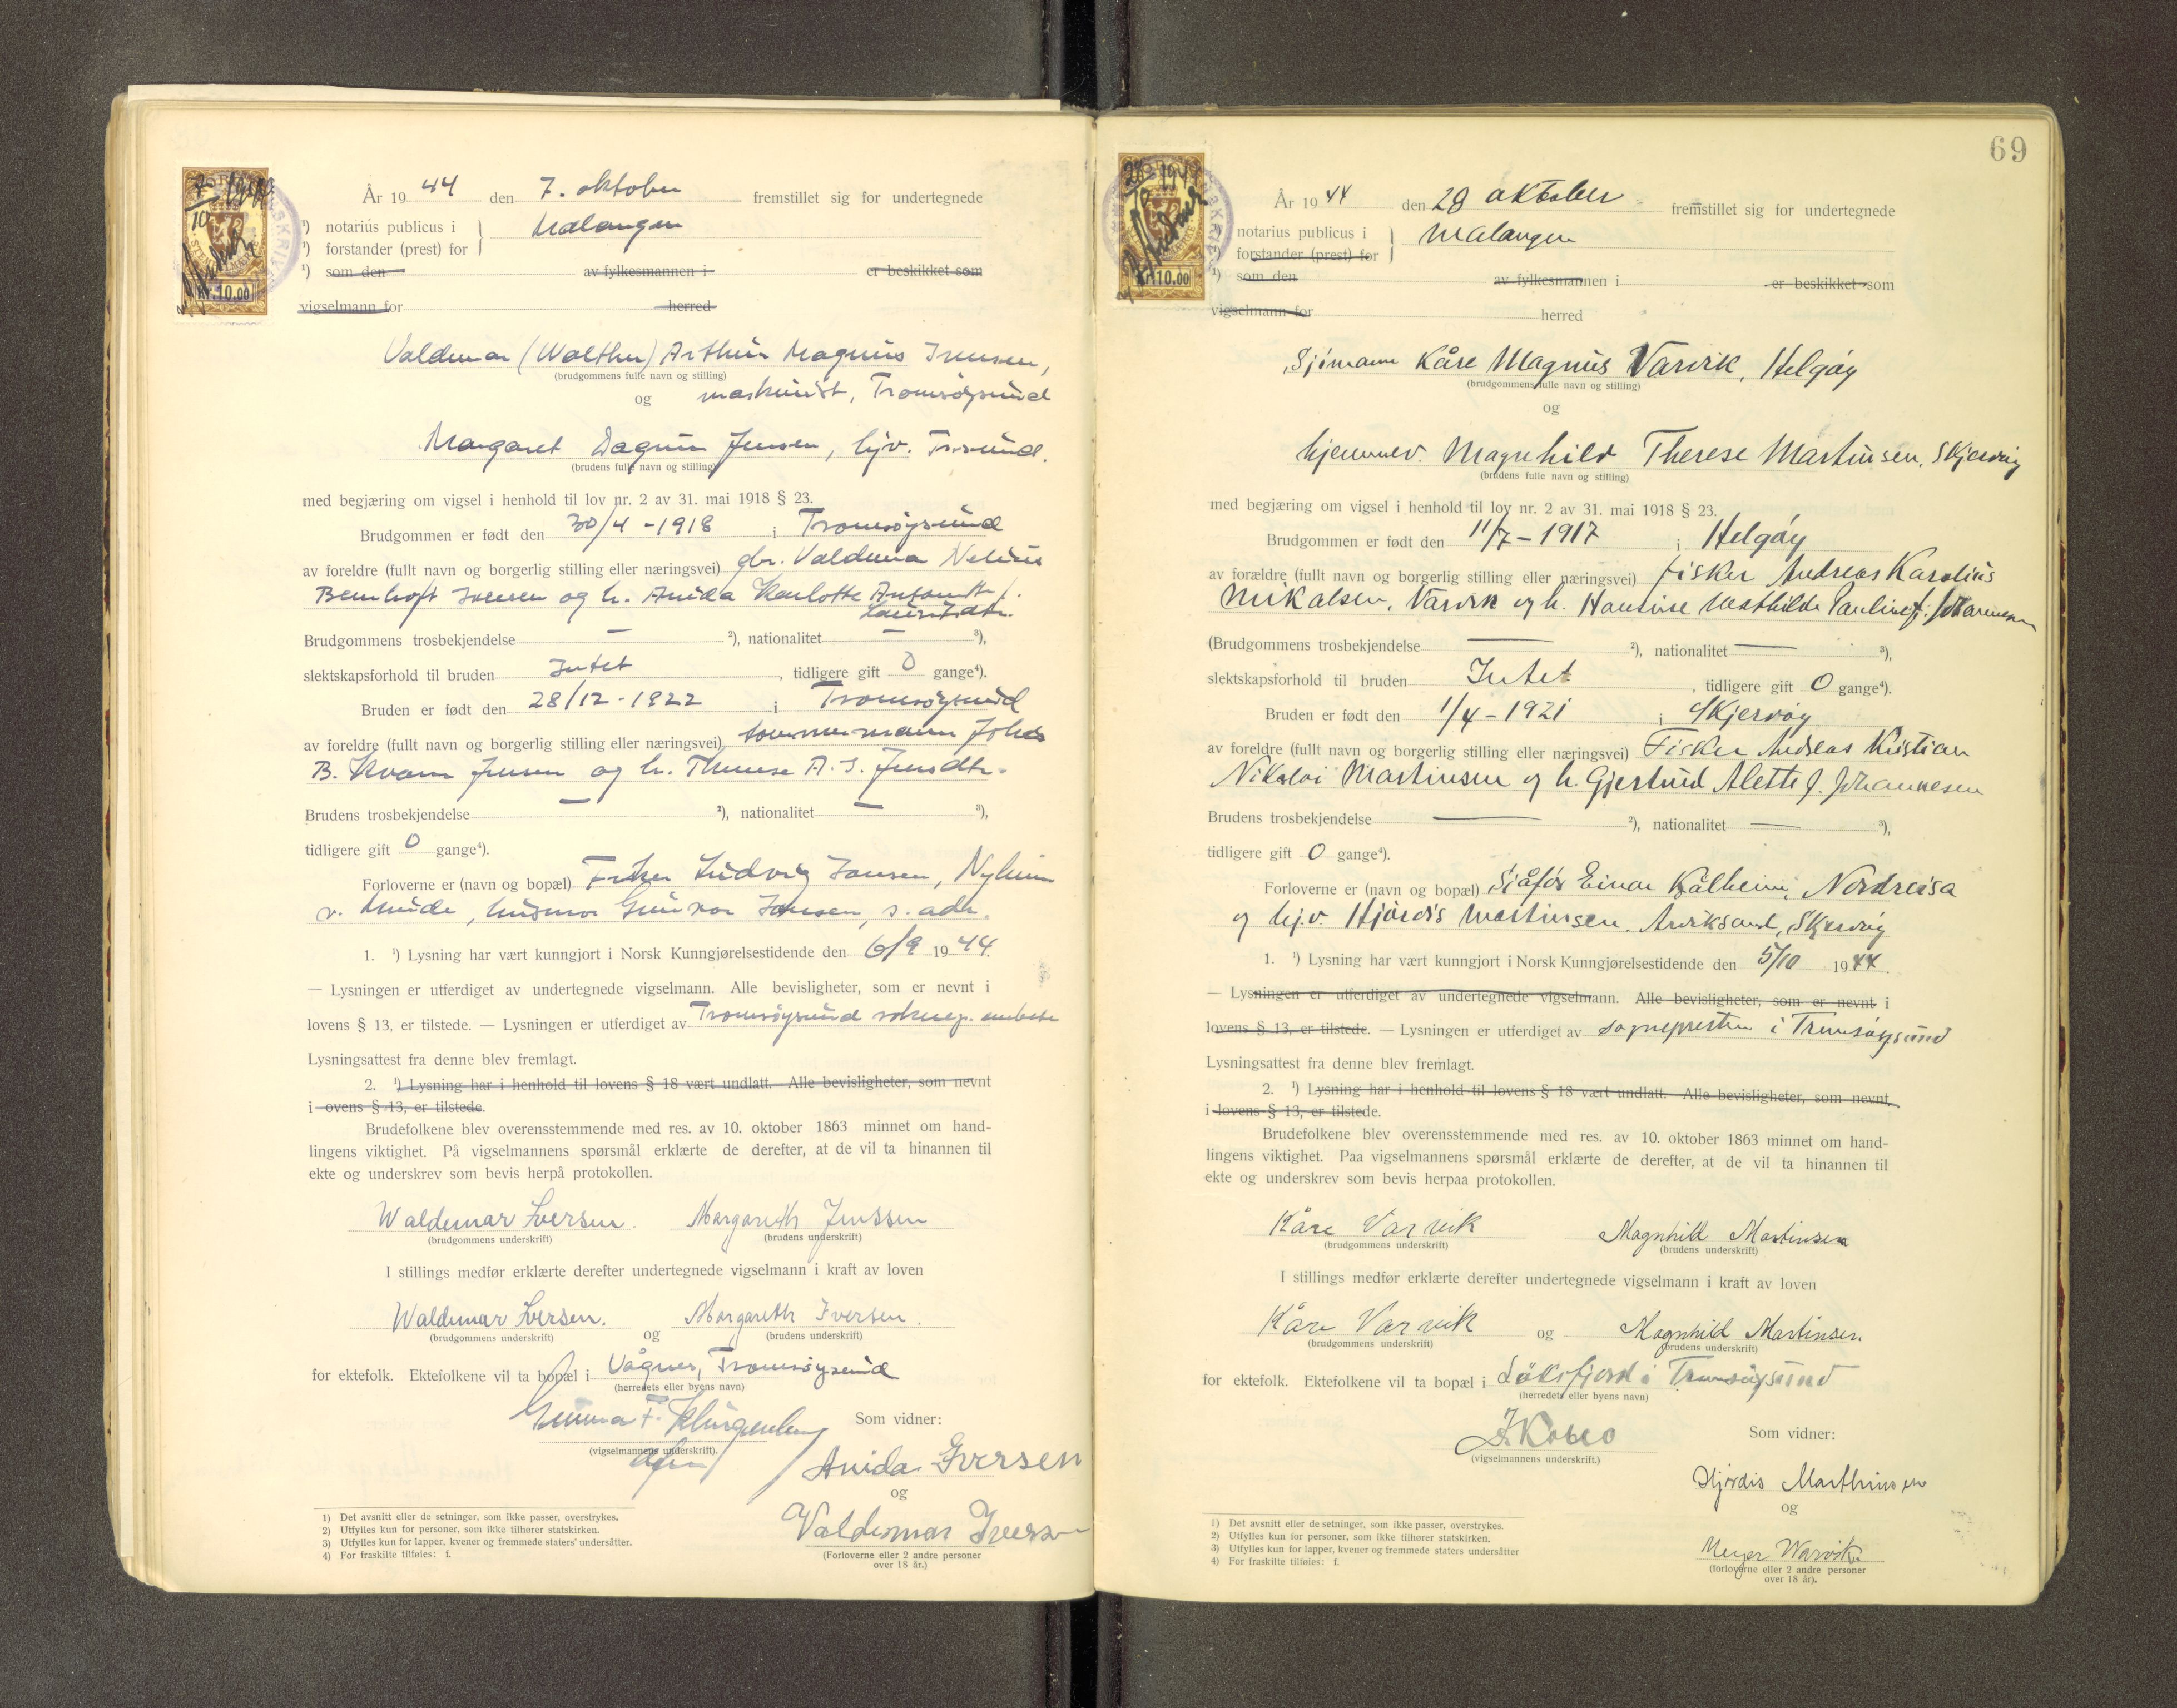 År 19 44 den 7. oktober fremstillet sig for undertegnede
1) notarius publicus i Malangen
1) forstander (prest) for
1) som den av fylkesmannen i er beskikket som
vigselmann for herred
Kr. 10.00
Valdemar (Walther) Arthur Magnus Iversen,
(brudgommens fulle navn og stilling)
og maskinist, Tromsøysund
Margaret Dagrun Jensen, hjv. Tr.sund.
(brudens fulle navn og stilling)
med begjæring om vigsel i henhold til lov nr. 2 av 31. mai 1918 § 23.
Brudgommen er født den 30/4 - 1918 i Tromsøysund
av foreldre (fullt navn og borgerlig stilling eller næringsvei) gbr. Valdemar Nelius
Iversen og h. Anida Karlotte f.
Brudgommens trosbekjendelse — 2), nationalitet — 3),
slektskapsforhold til bruden Intet, tidligere gift 0 gange4).
Bruden er født den 28/12 - 1922 i Tromsøysund
av foreldre (fullt navn og borgerlig stilling eller næringsvei) tømmermann
B. Kvam Jensen og h. Therese A. J. Jensdtr.
Brudens trosbekjendelse — 2), nationalitet — 3),
tidligere gift 0 gange4).
Forloverne er (navn og bopæl) Fisker Ludvig Jansen,
v. husmor Gunvor Jansen, s. adr.
1. 1) Lysning har vært kunngjort i Norsk Kunngjørelsestidende den 6/9 1944.
— Lysningen er utferdiget av undertegnede vigselmann. Alle bevisligheter, som er nevnt i
lovens § 13, er tilstede. — Lysningen er utferdiget av Tromsøysund soknep. embete
Lysningsattest fra denne blev fremlagt.
2. 1) Lysning har i henhold til lovens § 18 vært undlatt. Alle bevisligheter, som nevnt
i ovens § 13, er tilstede.
Brudefolkene blev overensstemmende med res. av 10. oktober 1863 minnet om hand-
lingens viktighet. På vigselmannens spørsmål erklærte de derefter, at de vil ta hinannen til
ekte og underskrev som bevis herpå protokollen.
Waldemar Iversen. Margareth Jenssen
(brudgommens underskrift) (brudens underskrift)
I stillings medfør erklærte derefter undertegnede vigselmann i kraft av loven
Waldemar Iversen. og Margareth Iversen.
(brudgommens underskrift) (brudens underskrift)
for ektefolk. Ektefolkene vil ta bopæl i Vågnes, Tromsøysund
(herredets eller byens navn)
Emma F. Klingenberg
(vigselmannens underskrift).
Som vidner:
Anida Iversen
og
Valdemar Iversen
(Forloverne eller 2 andre personer
over 18 år.)
1) Det avsnitt eller de setninger, som ikke passer, overstrykes.
2) Utfylles kun for personer, som ikke tilhører statskirken.
3) Utfylles kun for lapper, kvener og fremmede staters' undersåtter.
4) For fraskilte tilføies: f.
69
År 19 44 den 28 oktober fremstillet sig for undertegnede
notarius publicus i Malangen
forstander (prest) for
1) som den av fylkesmannen i er beskikket som
vigselmann for herred
Kr. 10.00
Sjømann Kåre Magnus Varvik, Helgøy
(brudgommens fulle navn og stilling)
og
hjemmev. Magnhild Therese Martinsen, Skjervøy
(brudens fulle navn og stilling)
med begjæring om vigsel i henhold til lov nr. 2 av 31. mai 1918 § 23.
Brudgommen er født den 11/7 - 1917 i Helgøy
av forældre (fullt navn og borgerlig stilling eller næringsvei) fisker Andreas Karolius
Mikalsen, Varvik og h. Hansine Mathilde Pauline f. Johannesen
(Brudgommens trosbekjendelse — 2), nationalitet — 3),
slektskapsforhold til bruden Intet, tidligere gift 0 gange4).
Bruden er født den 1/4 - 1921 i Skjervøy
av foreldre (fullt navn og borgerlig stilling eller næringsvei) Fisker Andreas Kristian
Nikolai Martinsen og h. Gjertrud Alette f. Johannesen
Brudens trosbekjendelse — 2), nationalitet — 3),
tidligere gift 0 gange4).
Forloverne er (navn og bopæl) Sjåfør Einar Kjålheim, Nordreisa
og hj.v. Hjørdis Martinsen, Arviksand, Skjervøy
1. 1) Lysning har vært kunngjort i Norsk Kunngjørelsestidende den 5/10 1944.
— Lysningen er utferdiget av undertegnede vigselmann. Alle bevisligheter, som er nevnt i
lovens § 13, er tilstede. — Lysningen er utferdiget av sognepresten i Tromsøysund
Lysningsattest fra denne blev fremlagt.
2. 1) Lysning har i henhold til lovens § 18 vært undlatt. Alle bevisligheter, som nevnt,
i lovens § 13, er tilstede.
Brudefolkene blev overensstemmende med res. av 10. oktober 1863 minnet om hand-
lingens viktighet. Paa vigselmannens spørsmål erklærte de derefter, at de vil ta hinannen til
ekte og underskrev som bevis herpaa protokollen.
Kåre Varvik Magnhild Martinsen
(brudgommens underskrift) (brudens underskrift)
I stillings medfør erklærte derefter undertegnede vigselmann i kraft av loven
Kåre Varvik og Magnhild Martinsen.
(brudgommens underskrift) (brudens underskrift)
for ektefolk. Ektefolkene vil ta bopæl i Løksfjord i Tromsøysund
(herredets eller byens navn)
(vigselmannens underskrift.)
Som vidner:
Hjørdis Marthinsen
og
Meyer Warvik.
(forloverne eller 2 andre personer
over 18 år).
1) Det avsnitt eller de setninger, som ikke passer, overstrykes.
2) Utfylles kun for personer, som ikke tilhører statskirken.
3) Utfylles kun for lapper, kvener og fremmede staters undersåtter
4) For fraskilte tilføies: f.